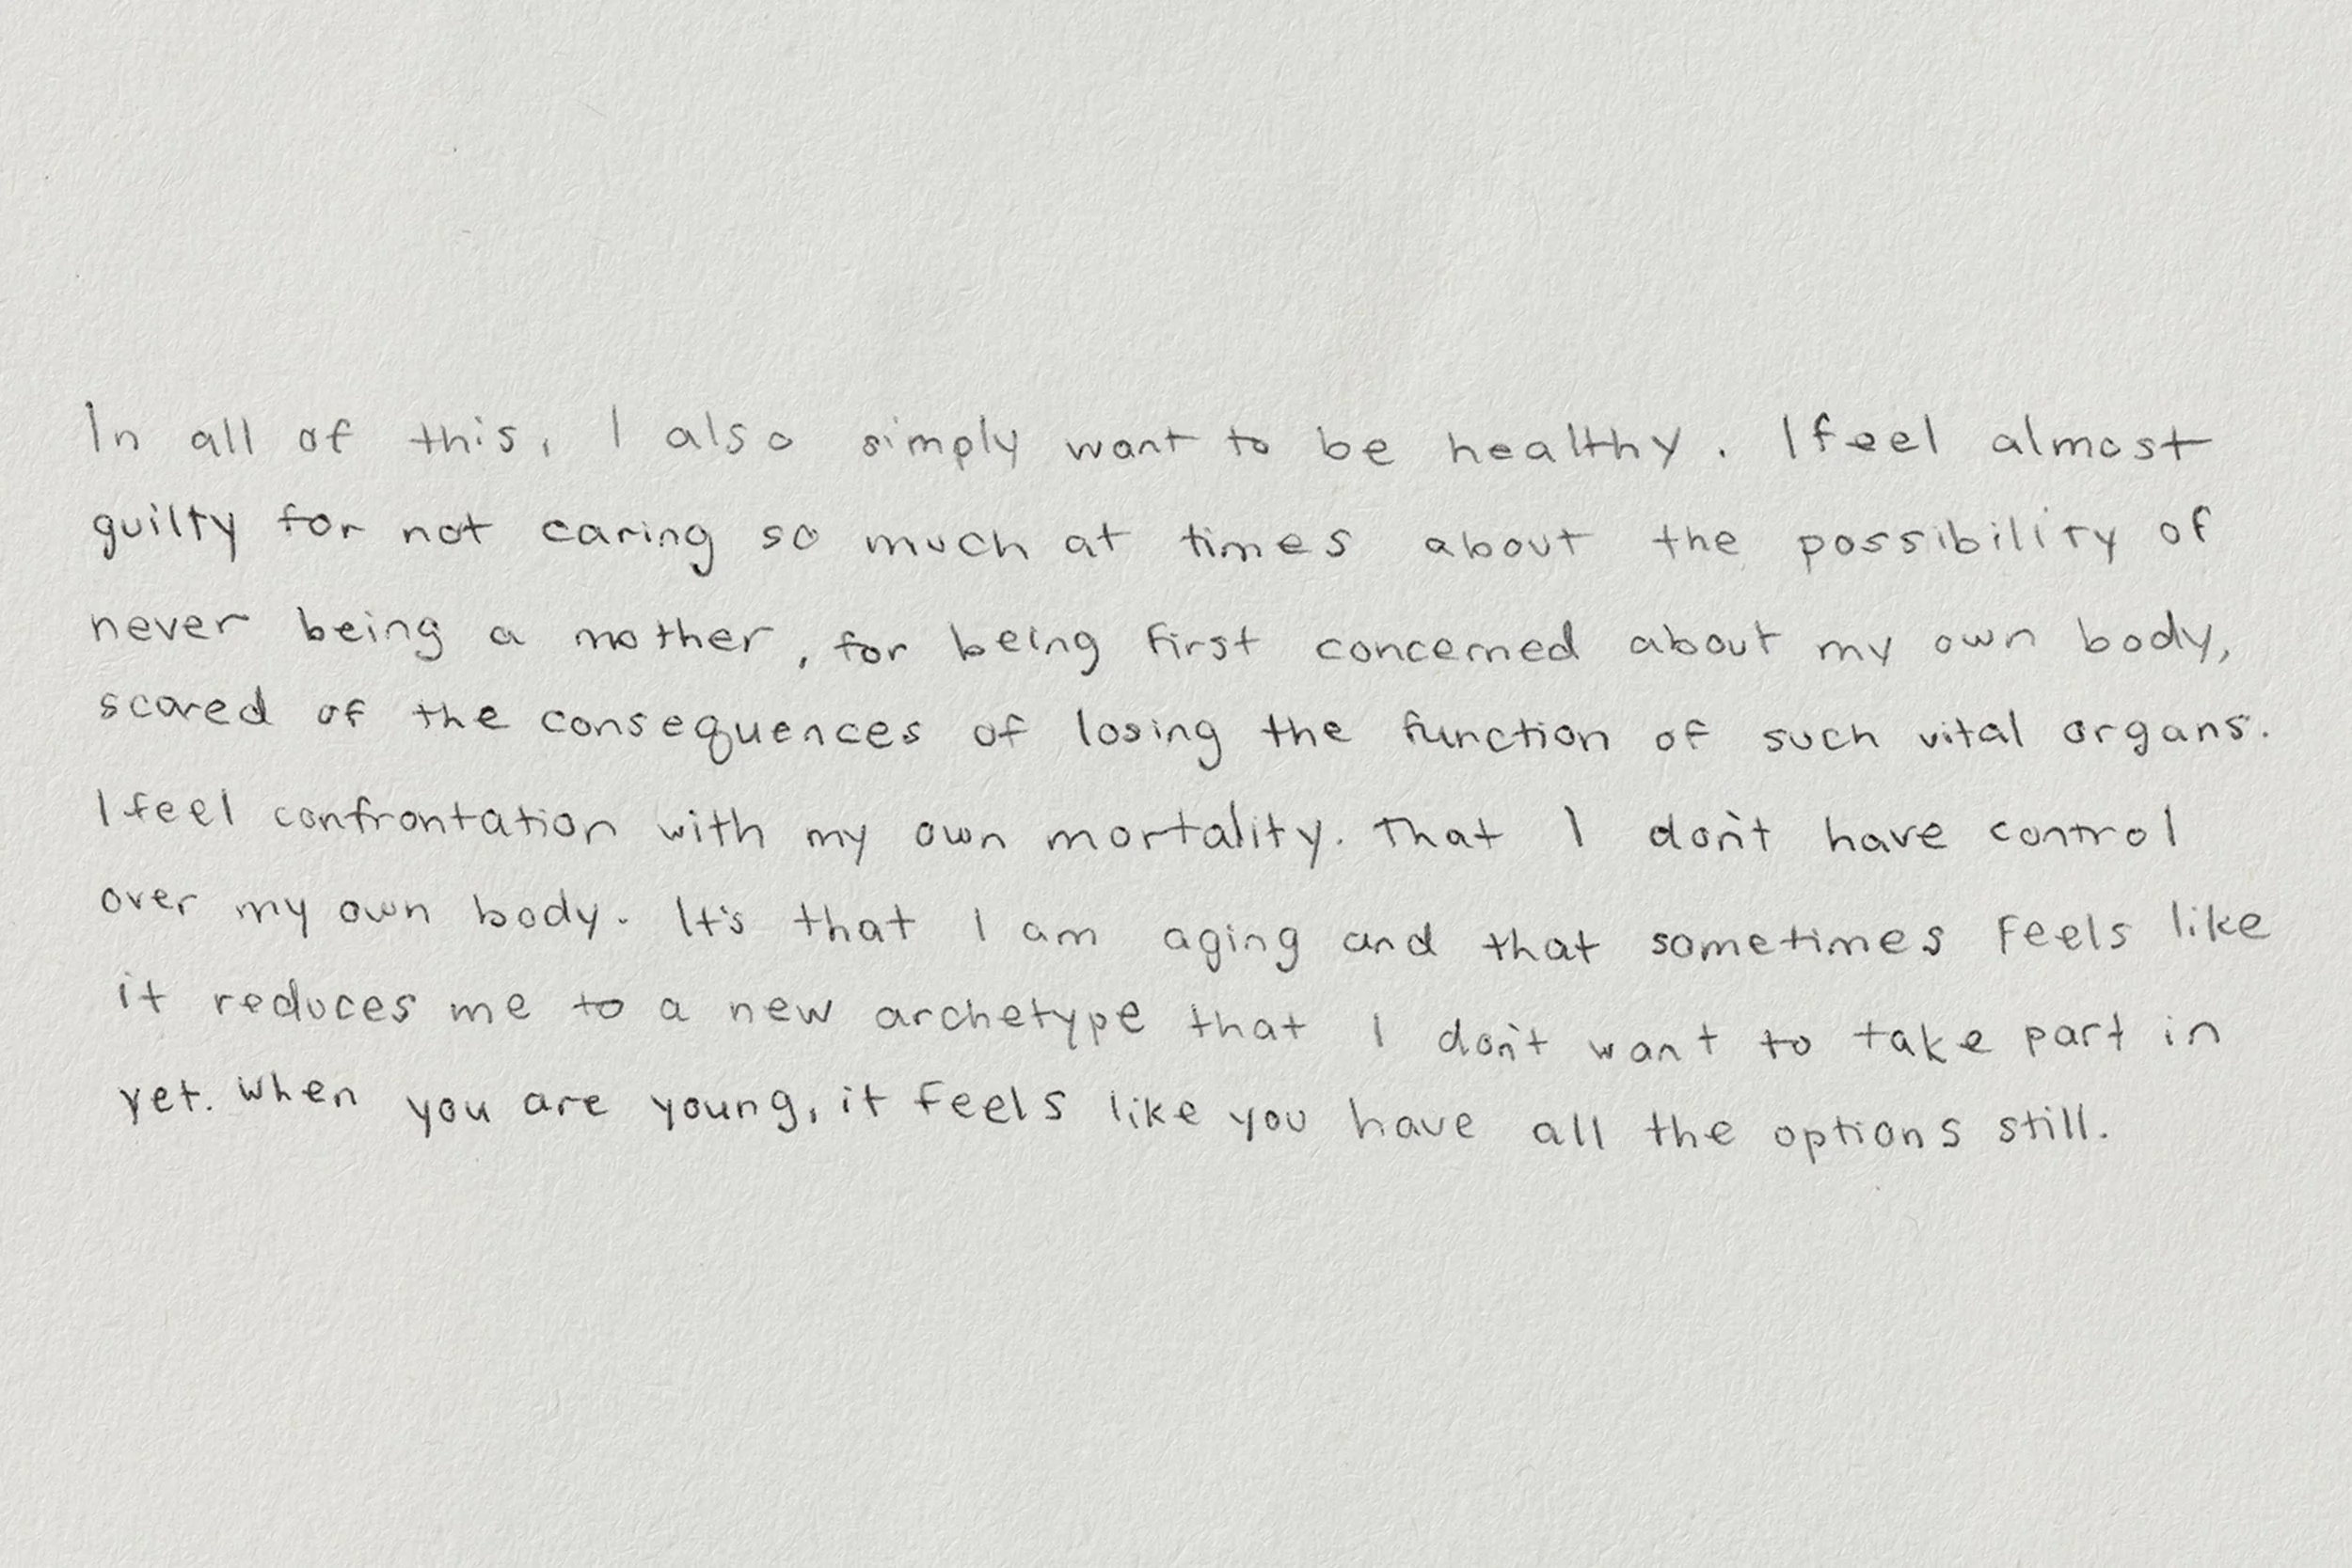 In all of this, I also simply want to be healthy. I feel almost
guilty for not caring so much at times about the possibility of
never being a mother, for being first concerned about my own body,
scared of the consequences of losing the function of such vital organs.
I feel confrontation with my own mortality. That I don't have control
over my own body. It's that I am aging and that sometimes feels like
it reduces me to a new archetype that I don't want to take part in
yet. When you are young, it feels like you have all the options still.